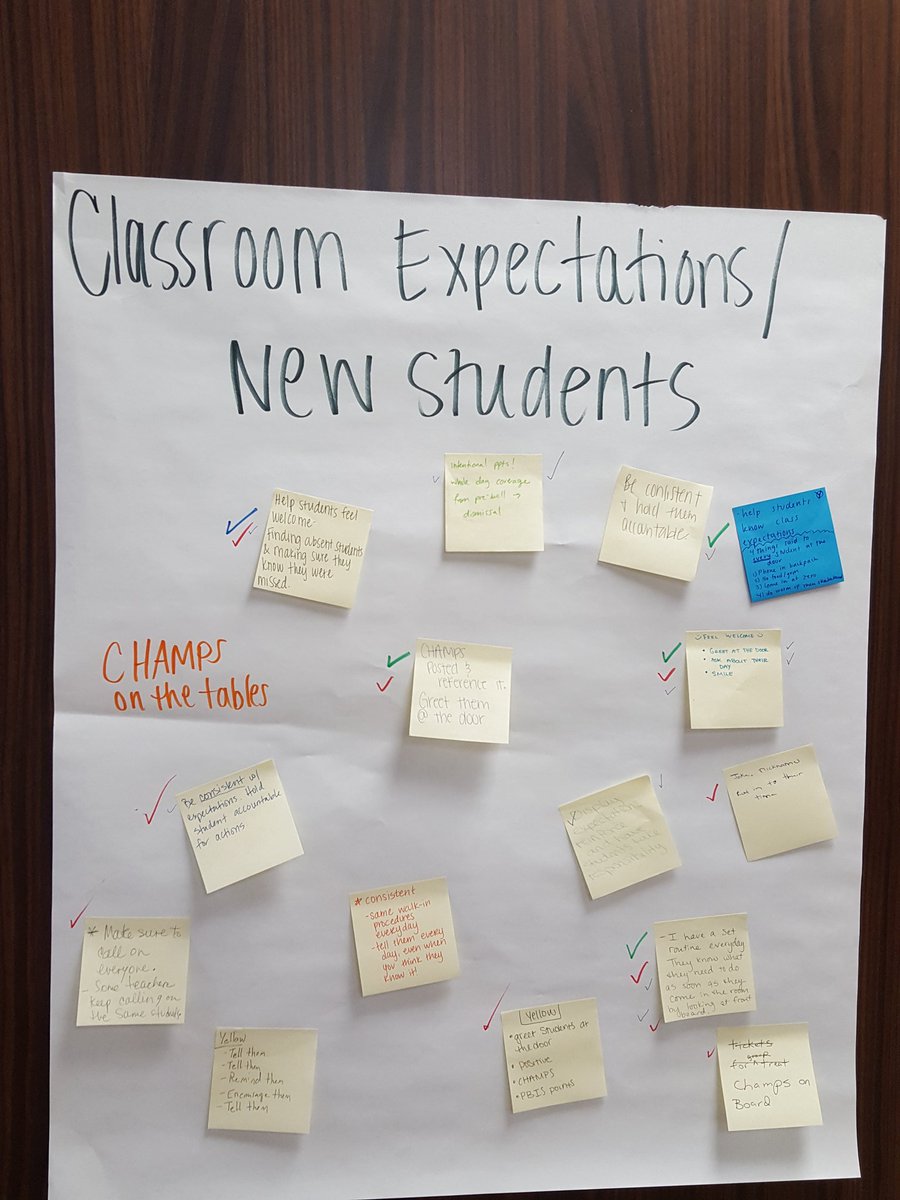 Classroom Expectations/
New Students
Help students feel
welcome-
Finding absent students
& making sure they
know they were
missed.
intentional ppts!
whole day coverage
from pre-bell →
dismissal
Be consistent
+ hold them
accountable.
- help students
know class
expectations
4 things told to
every student at the
door
1) Phone in backpack
2) No food/gum
3) Come in at zero
4) do warm up
CHAMPS
on the tables
CHAMPS
Posted &
reference it.
Greet them
@ the door
FEEL WELCOME
• GREET AT THE DOOR
• ASK ABOUT THEIR
DAY
• SMILE
Be consistent w/
expectations. Hold
student accountable
for actions
expectations
reinforce
and have
students take
responsibility
Joke, nicknames
* Make sure to
call on
everyone.
- Some teachers
keep calling on
the same students
* consistent
- same walk-in
procedures
everyday
- tell them every
day, even when
you think they
know it!
- I have a set
routine everyday.
They know what
they need to do
as soon as they
come in the room
by looking at front
board.
Yellow
- Tell them
- Tell them
- Remind them
- Encourage them
- Tell them
Yellow
• greet students at
the door
• positive
• CHAMPS
• PBIS points
Tickets
group
for a treat
Champs on
Board